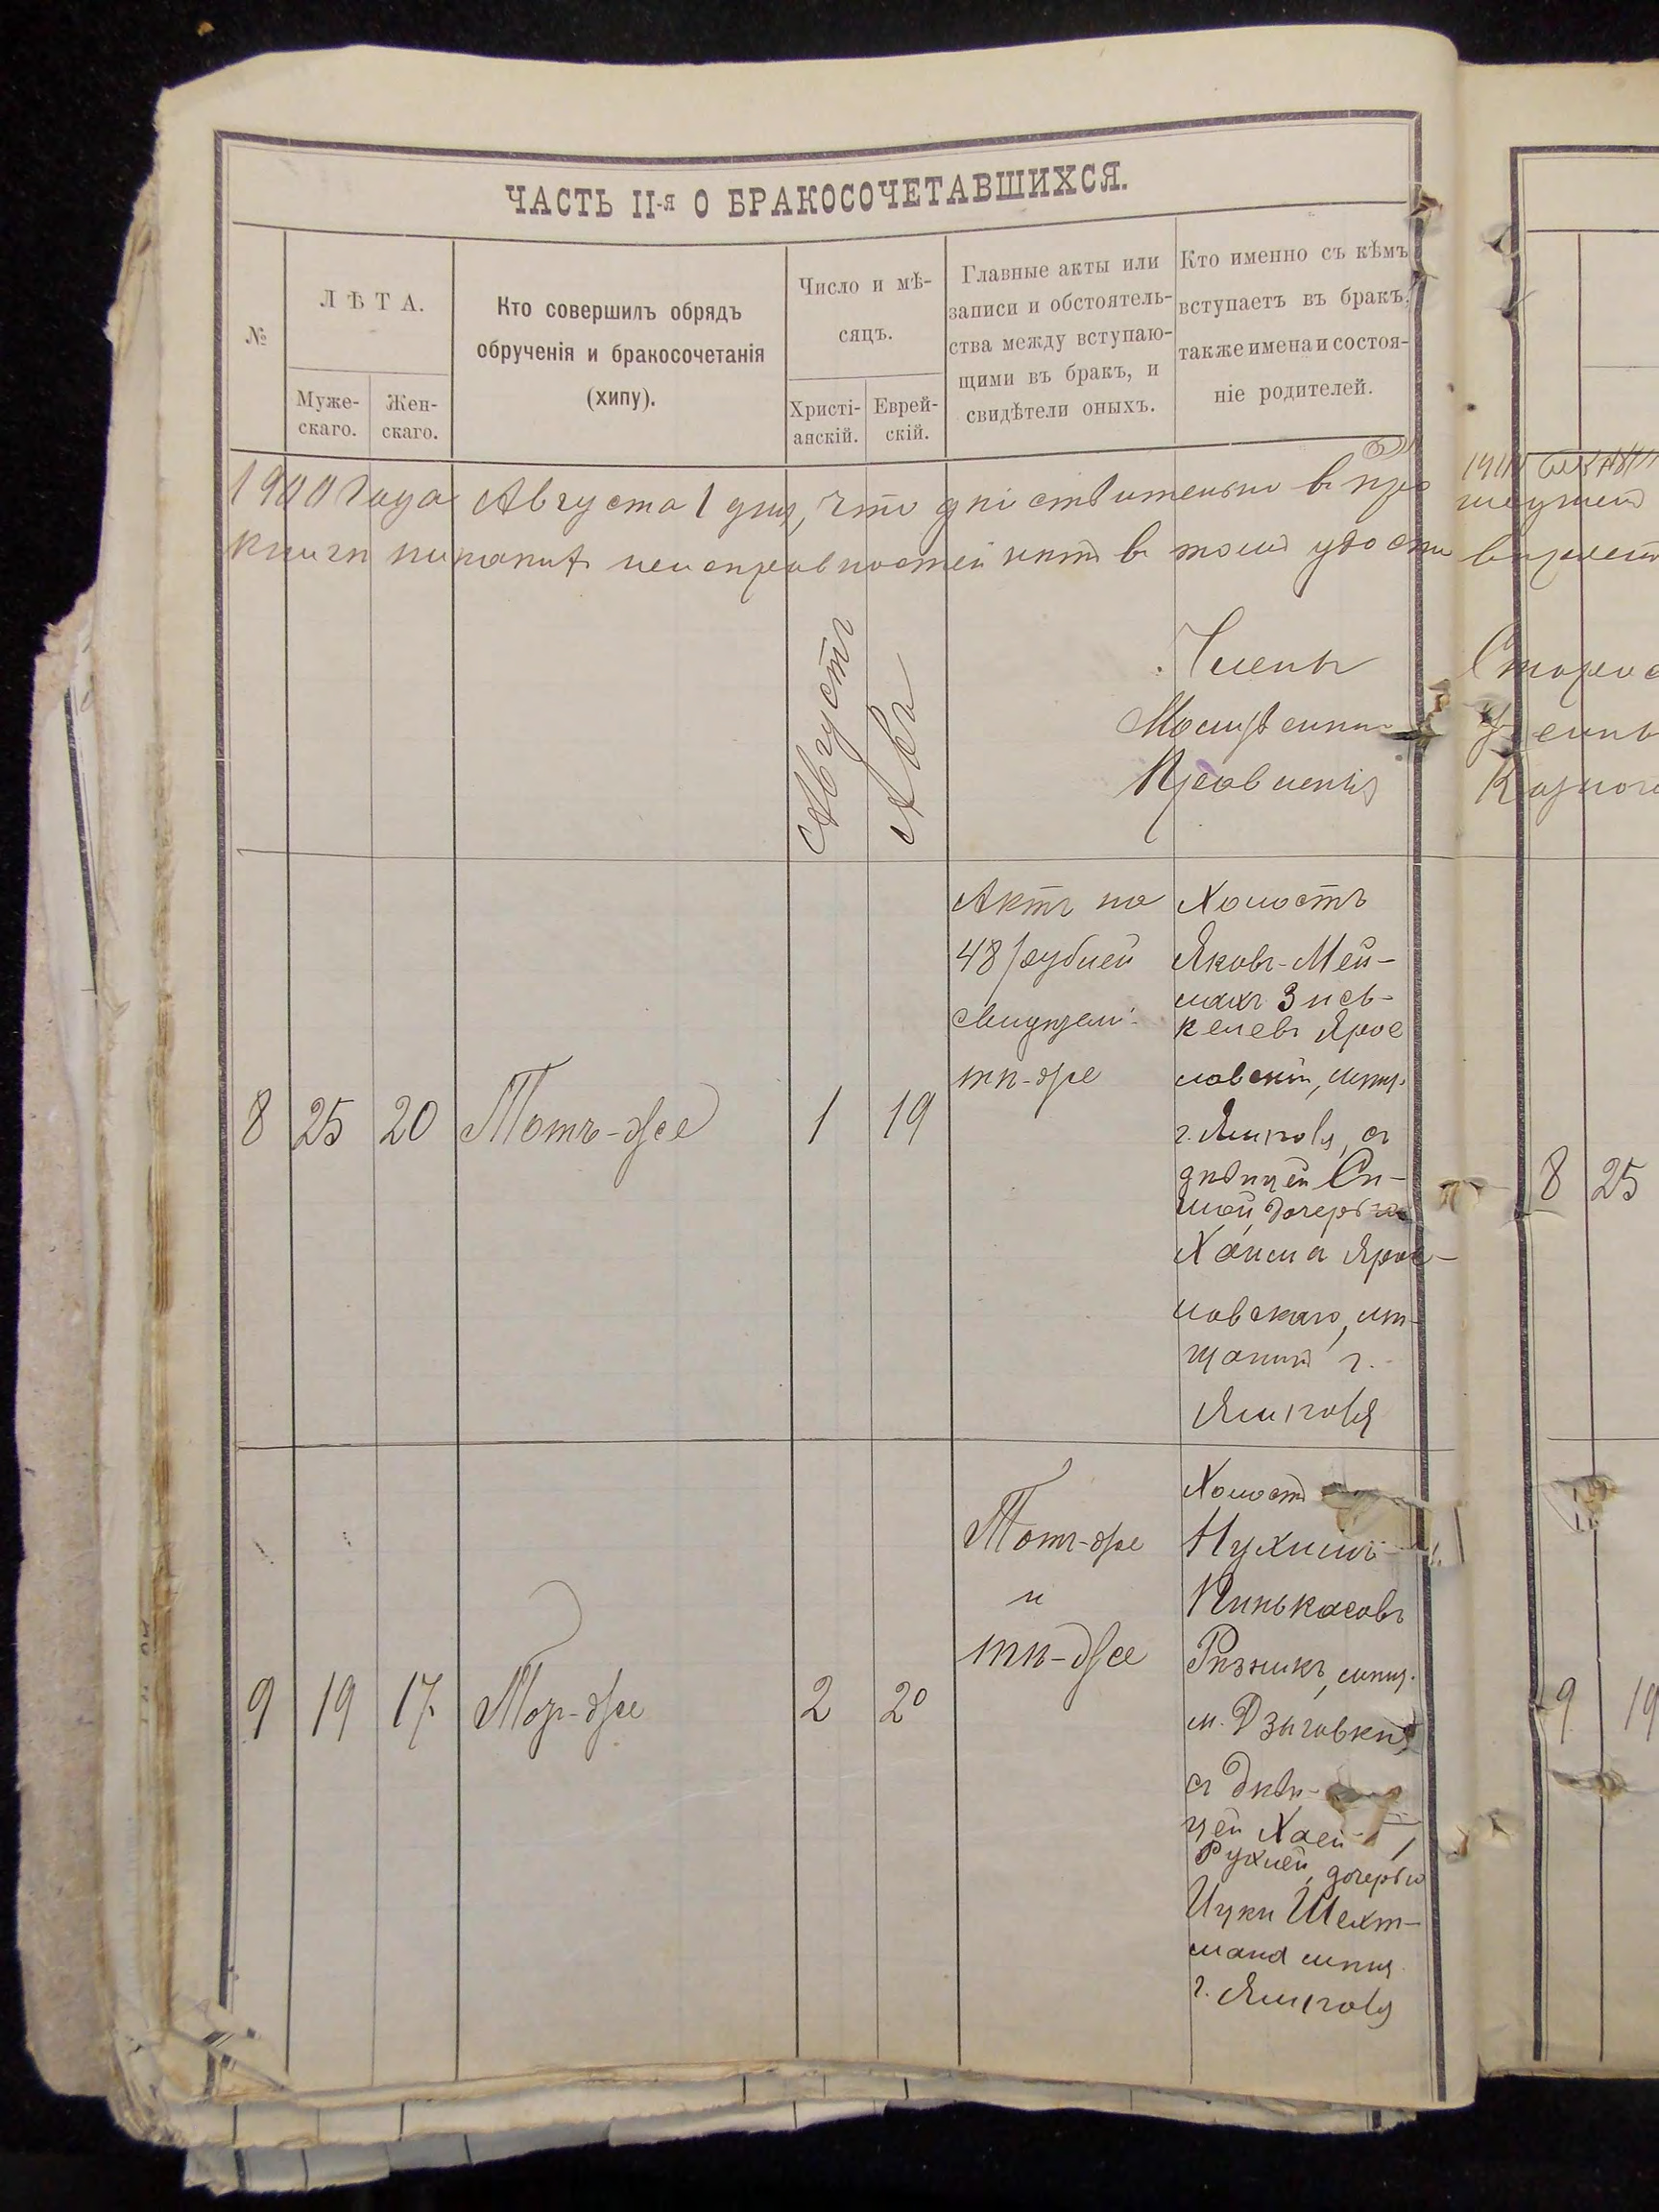 ЧАСТЬ II-я О БРАКОСОЧЕТАВШИХСЯ.
№
ЛѢТА.
Муже-
скаго.
Жен-
скаго.
Кто совершилъ обрядъ
обрученія и бракосочетанія
(хипу).
Число и мѣ-
сяцъ.
Христі-
анскій.
Еврей-
скій.
Главные акты или
записи и обстоятель-
ства между вступаю-
щими въ бракъ, и
свидѣтели оныхъ.
Кто именно съ кѣмъ
вступаетъ въ бракъ,
также имена и состоя-
ніе родителей.
1900 года Августа 1 дня, что дѣйствительно в
книги никакихъ неисправностей нѣтъ в томъ удосто
Августъ
Авъ
Членъ
Мѣщанск
Правленія
8 25 20 Тотъ-же 1 19
Актъ на
48 рублей
свидѣтели
тѣ-же
Холостъ
Яковъ-Мей-
лахъ Зись-
келевъ Яро
славскій, мѣщ.
г. Ямполя, съ
дѣвицей Си-
мой дочерью
Хаима Яро-
славскаго, мѣ-
щанин г.
Ямполя
9 19 17 Тотъ-же 2 20
Тотъ-же
и
тѣ-же
Холостъ
Нухимъ
Пинькасовъ
Рѣзникъ, мѣщ.
м. Дзыговки,
съ дѣви-
цей Хаей-
Рухлей, дочерью
Ицки Шехт-
мана мѣщ.
г. Ямполя
8 25
9 19